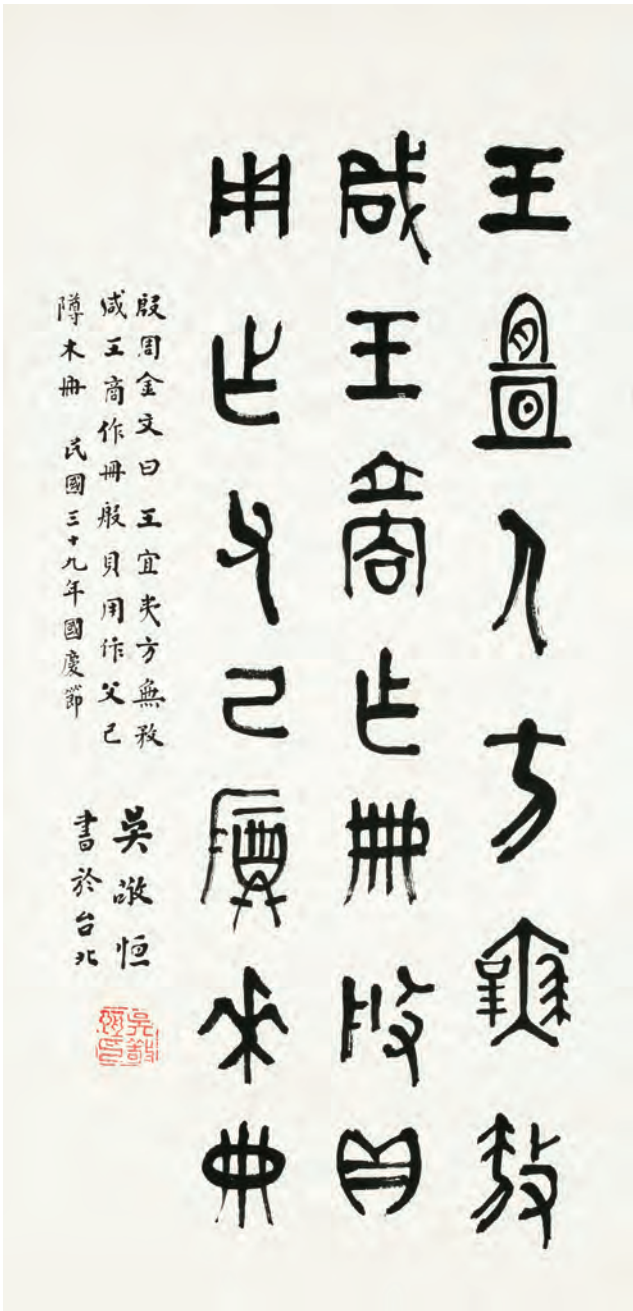 王宜人方無敄
咸王商乍冊般貝
用乍父己尊來冊
殷周金文曰王宜夷方無敄
咸王商作冊般貝用作父己
木冊 民國三十九年國慶節
吳敬恒
書於台北
吳敬恒印